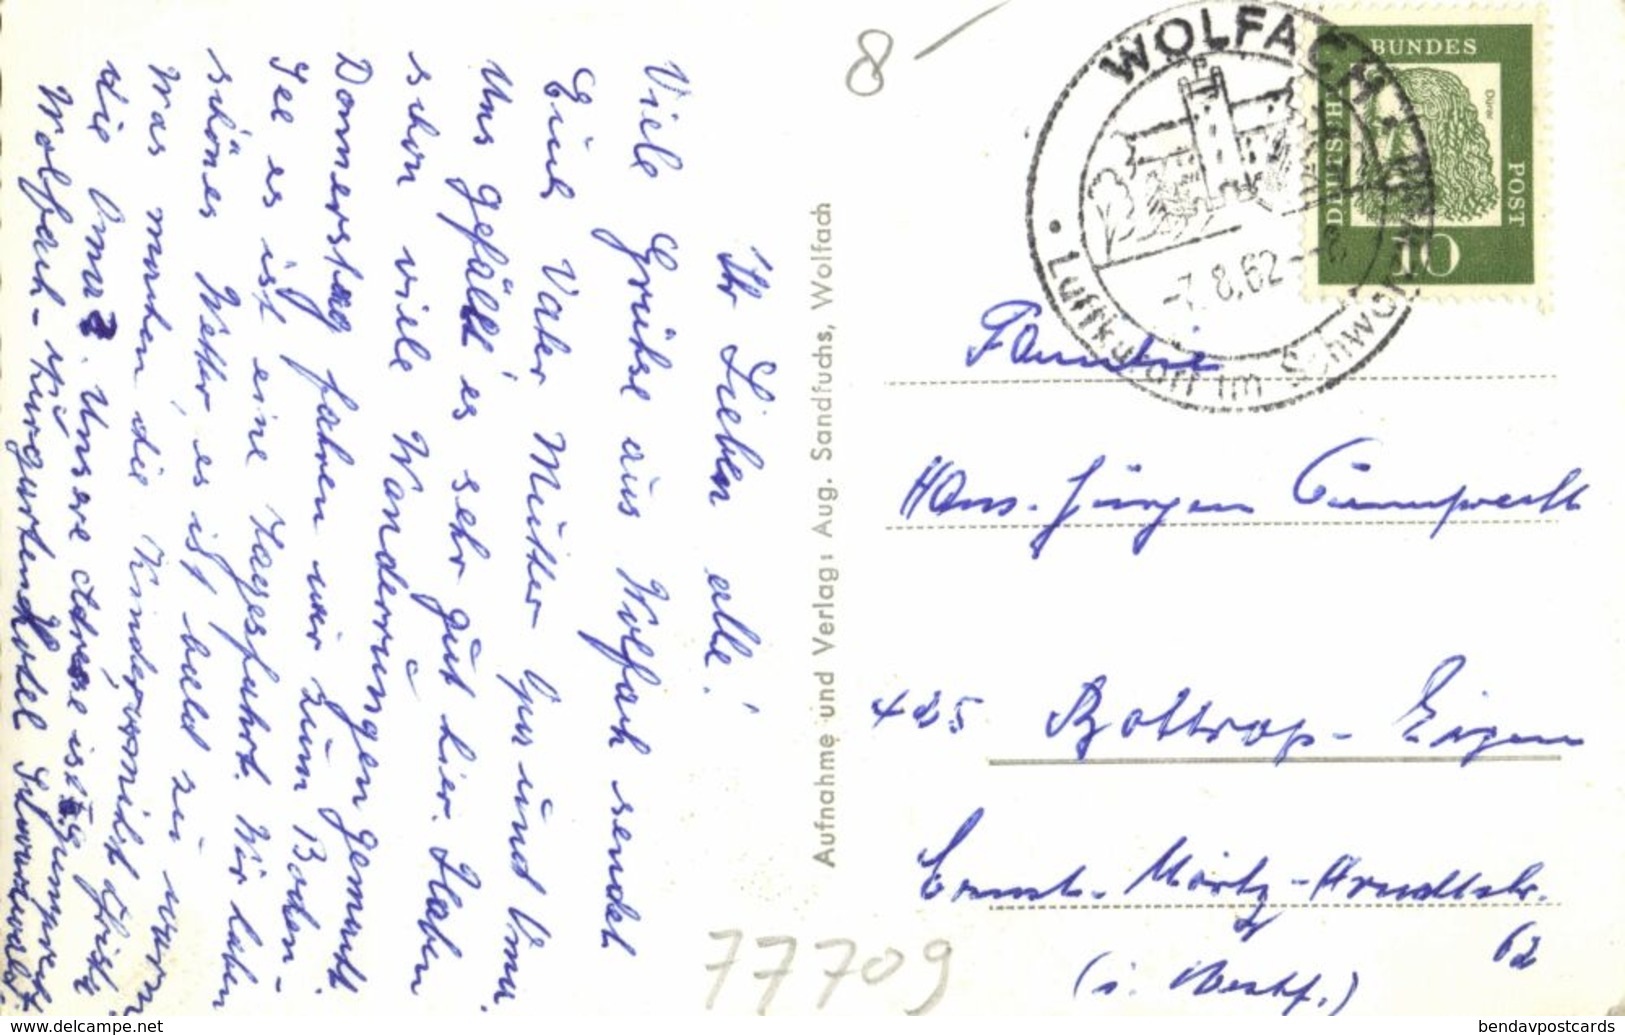 Ihr Lieben alle!
Viele Grüße aus Wolfach sendet
Euch Vater Mutter und Oma.
Uns gefällt es sehr gut hier. Haben
schon viele Wanderungen gemacht
Donnerstag fahren wir zum Boden-
See es ist eine Tagesfahrt. Wir haben
schönes Wetter, es ist bald zu warm
Was machen die Kinder, vermißt
die Oma? Unsere Adresse ist Gumprecht
Wolfach - Kurgarten Hotel Schwarzwald.
Aufnahme und Verlag: Aug. Sandfuchs, Wolfach
8 –
WOLFACH
Luftkurort im Schwarz
-7.8.62-
DEUTSCHE
BUNDES
POST
Dürer
10
Familie
Hans-Jürgen Gumprecht
425 Bottrop-Eigen
Ernst-Moritz-Arndtstr.
62
(i. Westf.)
77709
www.delcampe.net
bendavpostcards